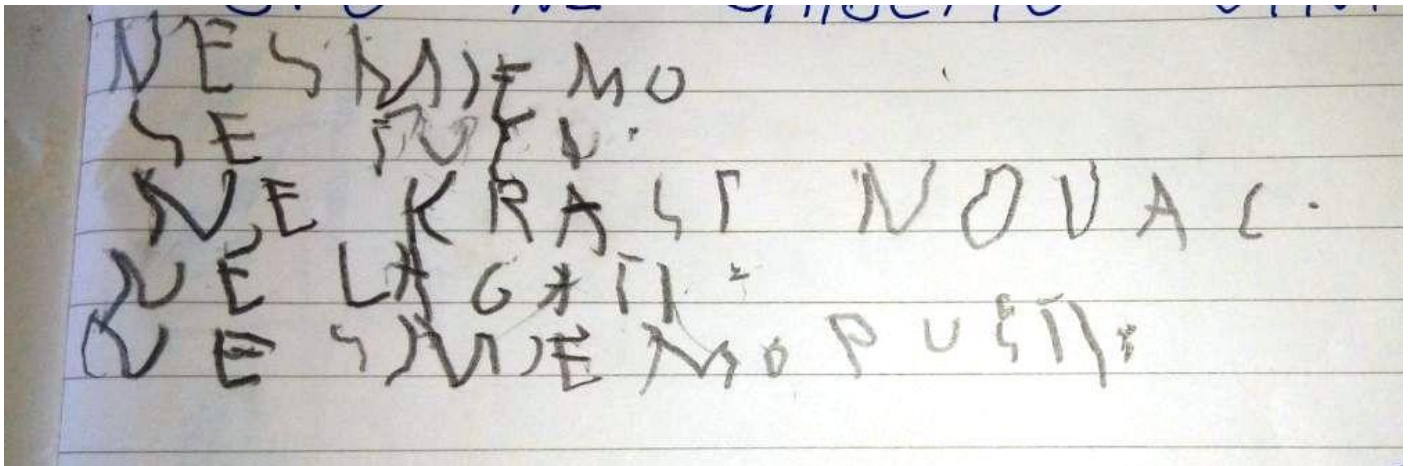 NESMIJEMO
SE TUĆI.
NE KRAST NOVAC.
NE LAGATI.
NE SMIJEMO PUŠTI.